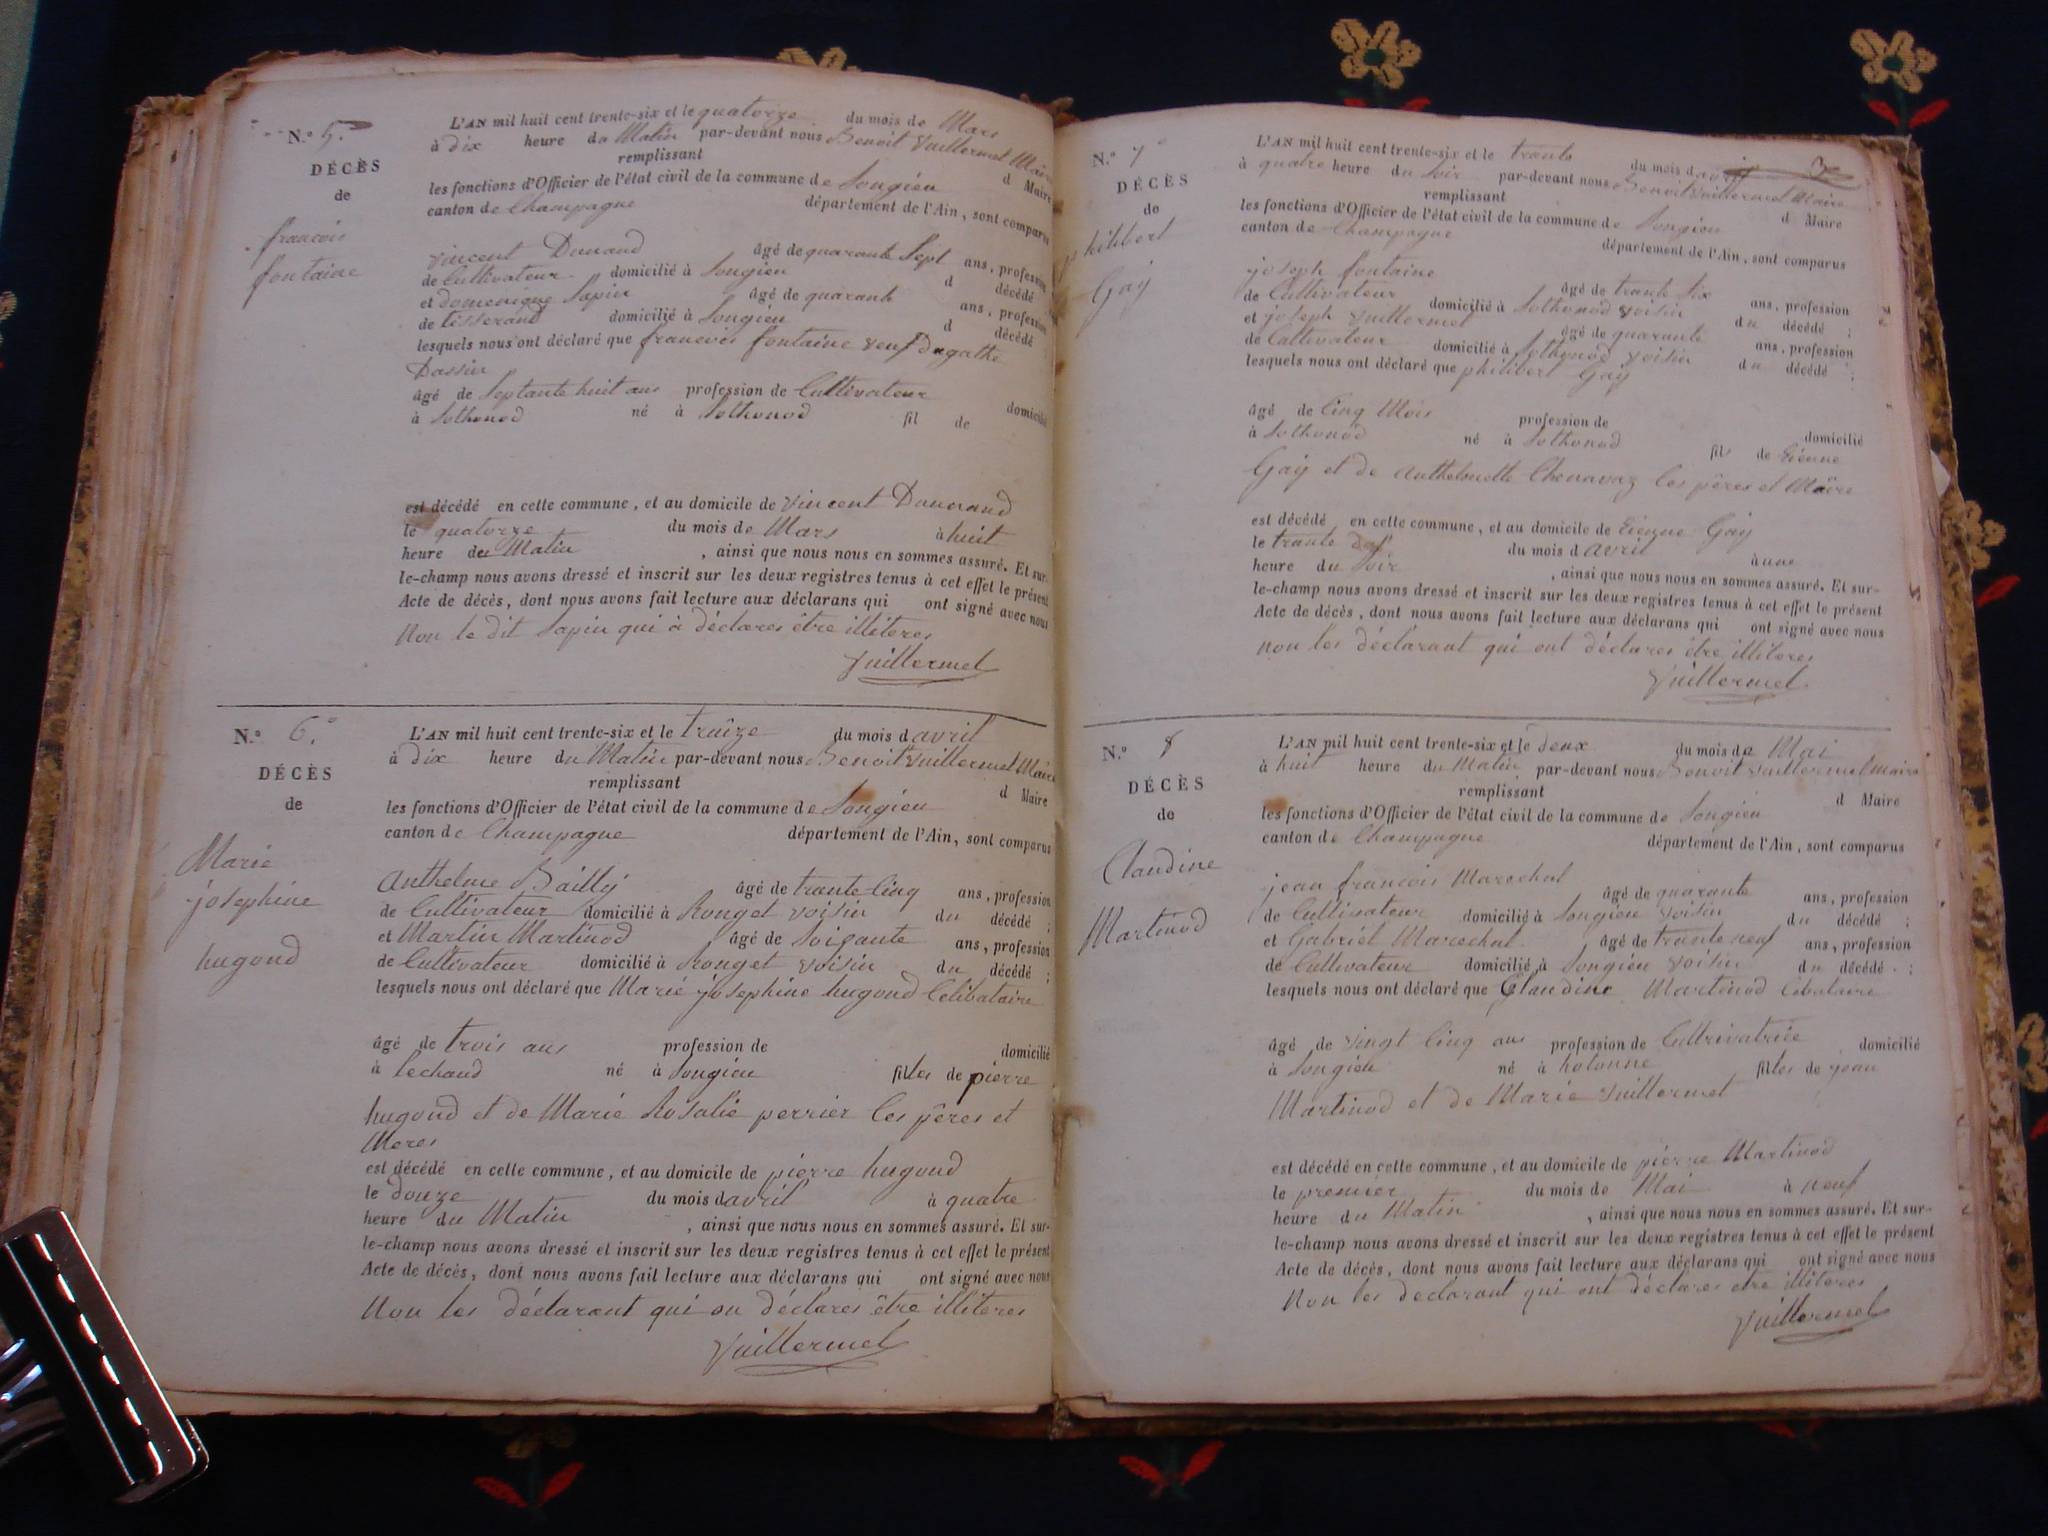 N.° 5.°
DÉCÈS
de
francois
fontaine
L'AN mil huit cent trente-six et le quatorze du mois de Mars
à dix heure du Matin par-devant nous Benoit Vuillermet Maire
remplissant d Maire
les fonctions d'Officier de l'état civil de la commune de Songieu
canton de Champagne département de l'Ain, sont comparus
vincent Dunand âgé de quarante Sept ans, profession
de Cultivateur domicilié à Songieu d décédé
et domenique Sapin âgé de quarante ans, profession
de tisserand domicilié à Songieu d décédé
lesquels nous ont déclaré que francois fontaine veuf dagathe
Dassin
âgé de Septante huit ans profession de Cultivateur domicilié
à Sothonod né à Sothonod fil de
est décédé en cette commune, et au domicile de vincent Dunand
le quatorze du mois de Mars à huit
heure deu Matin , ainsi que nous nous en sommes assuré. Et sur-
le-champ nous avons dressé et inscrit sur les deux registres tenus à cet effet le présent
Acte de décès, dont nous avons fait lecture aux déclarans qui ont signé avec nous
Non le dit Sapin qui à déclares être illiteres
Vuillermet
N.° 6.°
DÉCÈS
de
Marie
josephine
hugond
L'AN mil huit cent trente-six et le traize du mois d avril
à dix heure du Matin par-devant nous Benoit Vuillermet Maire
remplissant d Maire
les fonctions d'Officier de l'état civil de la commune de Songieu
canton de Champagne département de l'Ain, sont comparus
Anthelme Bailly âgé de trante Cinq ans, profession
de Cultivateur domicilié à Ronget voisin du décédé ;
et Martin Martinod âgé de Soisante ans, profession
de Cultivateur domicilié à Ronget voisin du décédé ;
lesquels nous ont déclaré que Marie josephine hugond Celibataire
âgé de trois ans profession de domicilié
à lechaud né à Songieu filles de pierre
hugond et de Marie Rosalie perrier les pêres et
Meres
est décédé en cette commune, et au domicile de pierre hugond
le douze du mois d avril à quatre
heure du Matin , ainsi que nous nous en sommes assuré. Et sur-
le-champ nous avons dressé et inscrit sur les deux registres tenus à cet effet le présent
Acte de décès, dont nous avons fait lecture aux déclarans qui ont signé avec nous
Non les déclarant qui on déclares être illiteres
Vuillermet
3
N.° 7°
DÉCÈS
de
philibert
Gay
L'AN mil huit cent trente-six et le trante du mois d avril
à quatre heure du Soir par-devant nous Benoit Vuillermet Maire
remplissant d Maire
les fonctions d'Officier de l'état civil de la commune de Songieu
canton de Champagne département de l'Ain, sont comparus
joseph fontaine âgé de trante Six ans, profession
de Cultivateur domicilié à Sothonod voisin du décédé ;
et joseph vuillermet âgé de quarante ans, profession
de Cultivateur domicilié à Sothonod voisin du décédé ;
lesquels nous ont déclaré que philibert Gay
âgé de Cinq Mois profession de domicilié
à Sothonod né à Sothonod fils de Etienne
Gay et de Anthelmette Chenavaz les pêres et Mère
est décédé en cette commune, et au domicile de Etienne Gay
le trante du mois d avril à une
heure du Soir , ainsi que nous nous en sommes assuré. Et sur-
le-champ nous avons dressé et inscrit sur les deux registres tenus à cet effet le présent
Acte de décès, dont nous avons fait lecture aux déclarans qui ont signé avec nous
non les déclarant qui ont déclares être illiteres
Vuillermet
N.° 8
DÉCÈS
de
Claudine
Martinod
L'AN mil huit cent trente-six et le deux du mois de Mai
à huit heure du Matin par-devant nous Benoit Vuillermet Maire
remplissant d Maire
les fonctions d'Officier de l'état civil de la commune de Songieu
canton de Champagne département de l'Ain, sont comparus
jean francois Marechal âgé de quarante ans, profession
de Cultivateur domicilié à Songieu voisin du décédé ;
et Gabriel Marechal âgé de trante neuf ans, profession
de Cultivateur domicilié à Songieu voisin du décédé ;
lesquels nous ont déclaré que Claudine Martinod Cibataire
âgé de vingt Cinq ans profession de Cultrivatrice domicilié
à Songieu né à hotonne filles de jean
Martinod et de Marie Vuillermet
est décédé en cette commune, et au domicile de pierre Martinod
le premier du mois de Mai à neuf
heure du Matin , ainsi que nous nous en sommes assuré. Et sur-
le-champ nous avons dressé et inscrit sur les deux registres tenus à cet effet le présent
Acte de décès, dont nous avons fait lecture aux déclarans qui ont signé avec nous
Non les declarant qui ont déclares etre illiteres
Vuillermet